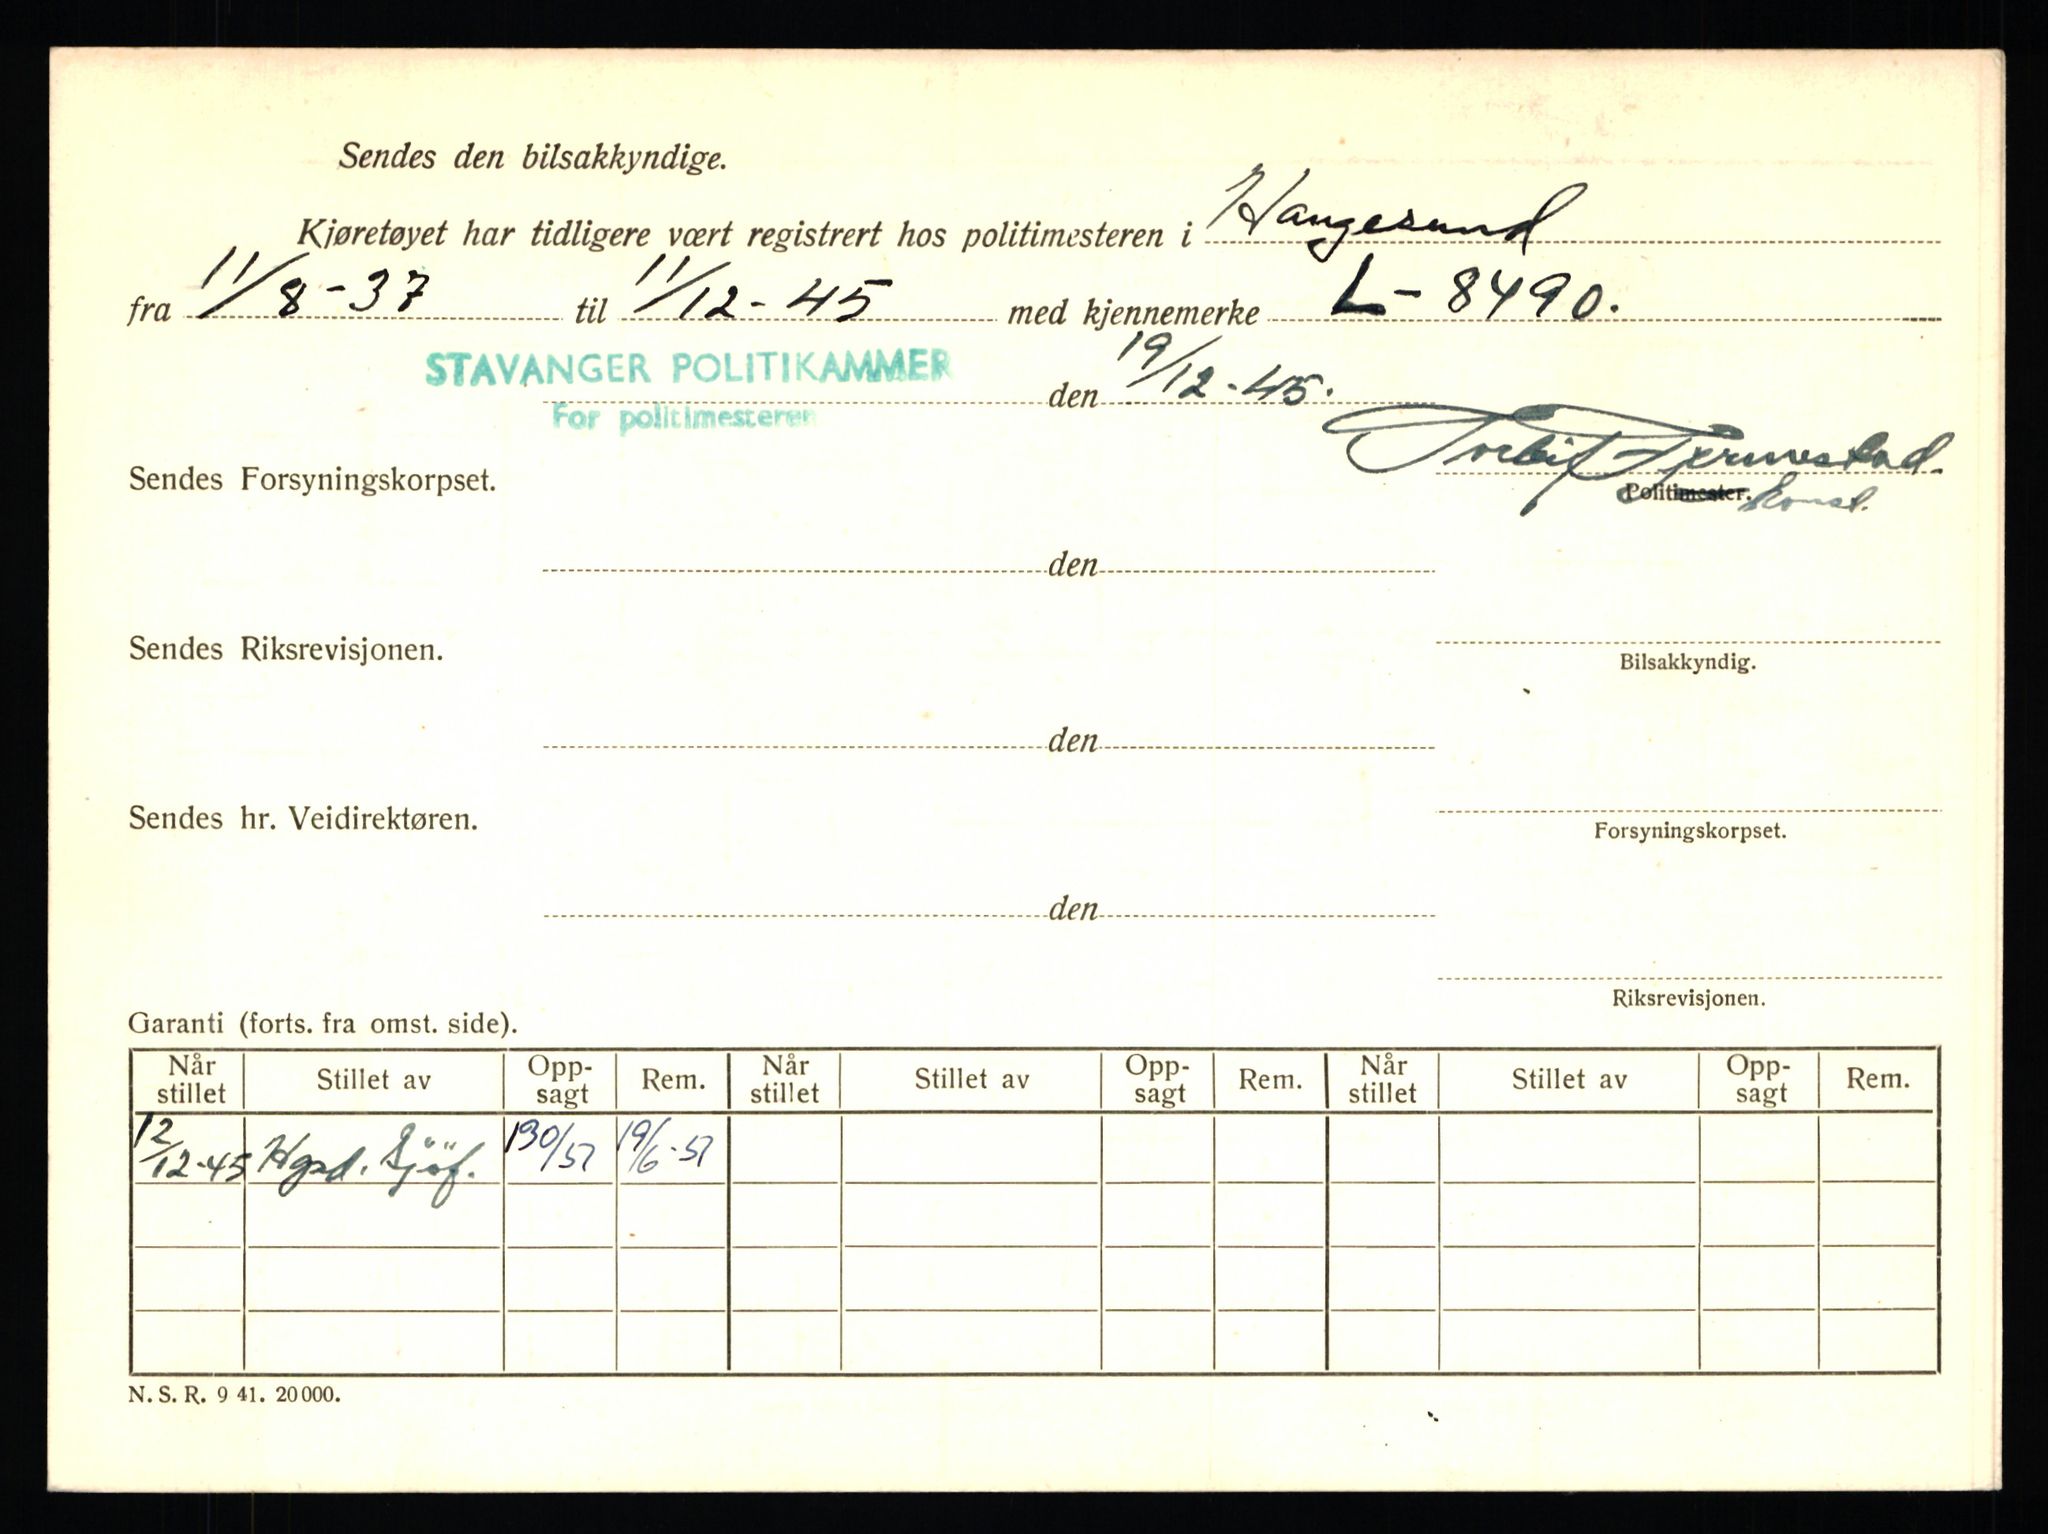 Sendes den bilsakkyndige.
Kjøretøyet har tidligere vært registrert hos politimesteren i Haugesund
fra 11/8-37 til 11/12-45 med kjennemerke L-8490.
STAVANGER POLITIKAMMER den 19/12-45.
For politimesteren
Sendes Forsyningskorpset.
Politimester. konst.
den
Sendes Riksrevisjonen.
Bilsakkyndig.
den
Sendes hr. Veidirektøren.
Forsyningskorpset.
den
Riksrevisjonen.
Garanti (forts. fra omst. side).
Når stillet Stillet av Opp-sagt Rem. Når stillet Stillet av Opp-sagt Rem. Når stillet Stillet av Opp-sagt Rem.
12/12-45 Hgsd. Sjöf. 130/51 19/6-51
N. S. R. 9 41. 20 000.